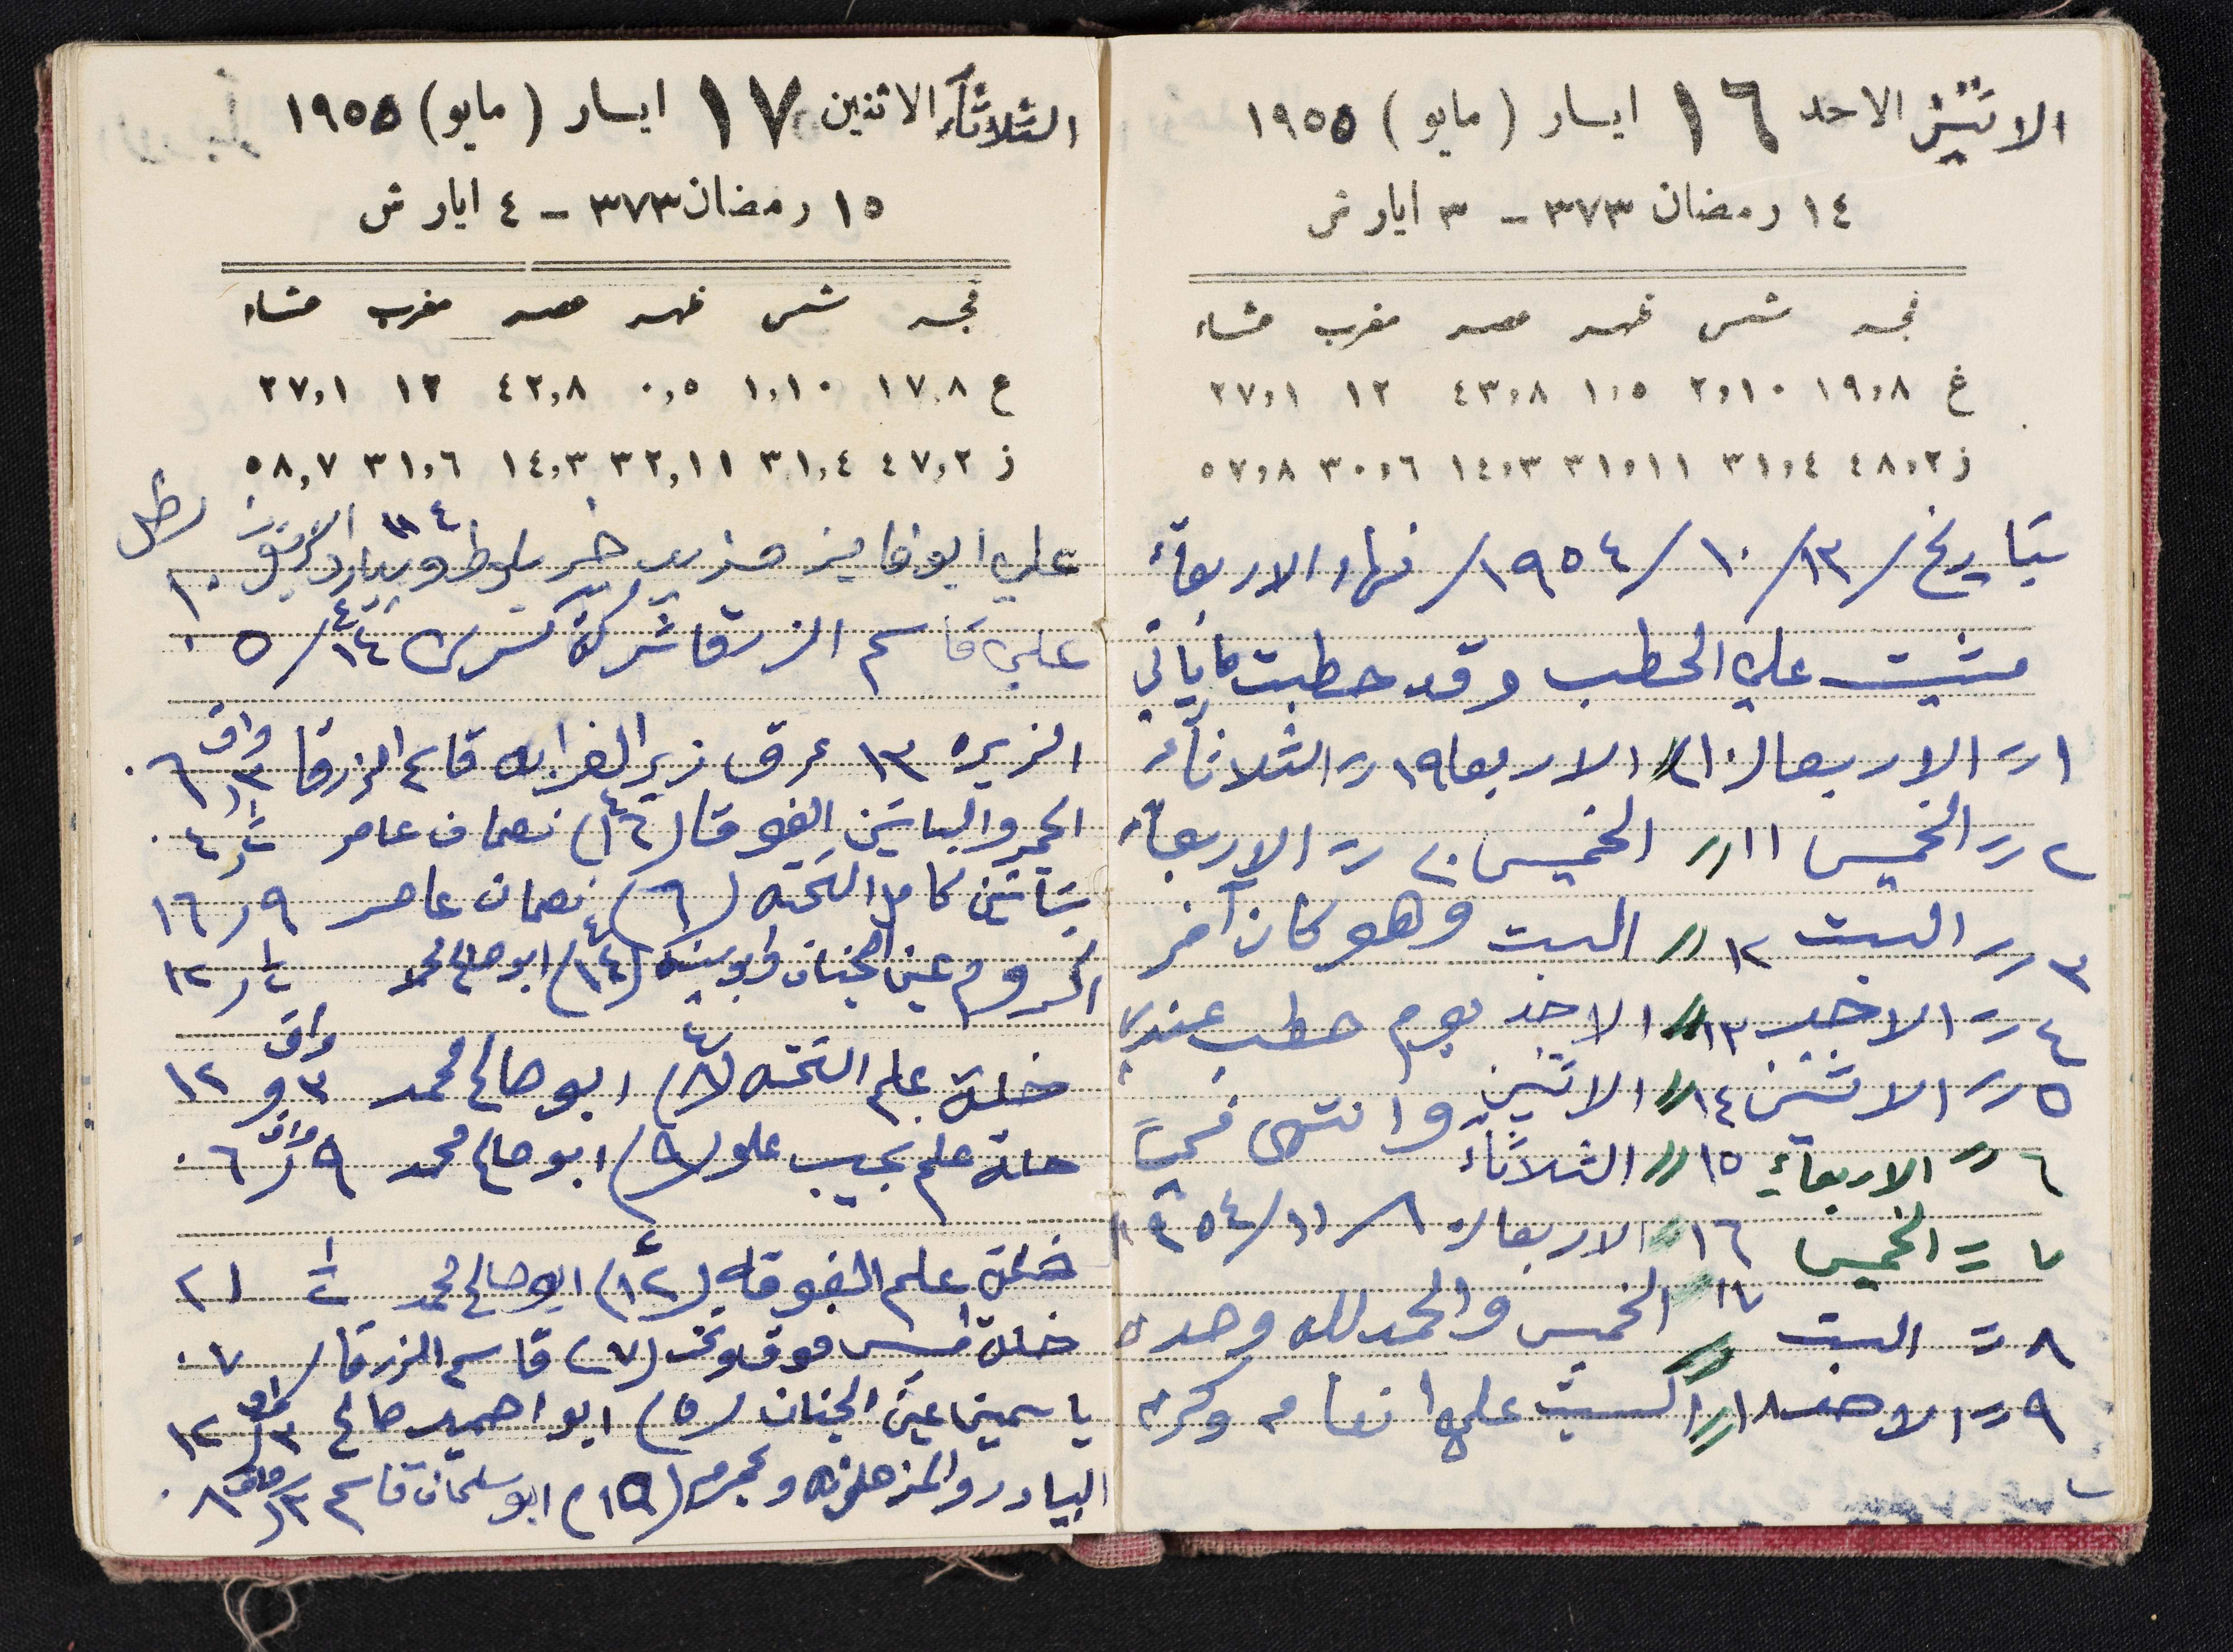 الاثنين الاحد ١٦ ايار ( مايو ) ١٩٥٥
١٤ رمضان ٣٧٣ – ٣ ايار ش
فجر شمس ظهر عصر مغرب عشاء
غ ١٩,٨ ٢,١٠ ١,٥ ٤٣,٨ ١٢ ٢٧,١
ز ٤٨,٢ ٣١,٤ ٣١,١١ ١٤,٣ ٣٠,٦ ٥٧,٨
بتاريخ /١٣/ ١٠/ ١٩٥٤/ نهار الاربعاء
مشيت على الحطب وقد حطبت كما يأتي
١ = الاربعا ١٠ // الاربعا ١٩ = الثلاثاء
٢ = الخميس ١١ // الخميس ٢٠ = الاربعاء
٣ = السبت ١٢ // السبت وهو كان آخر
٤ = الاحد ١٣ // الاحد يوم حطب عندي
٥ = الاثنين ١٤ // الاثنين وانتهى في
٦ = الاربعاء ١٥ // الثلاثاء
٧ = الخميس ١٦ // الاربعا
٨ = السبت ١٧ // الخميس والحمد لله وحده
٩ = الاحد ١٨ // السبت على انعامه وكرمه
الثلاثاء الاثنين ١٧ ايار ( مايو ) ١٩٥٥
١٥ رمضان ٣٧٣ – ٤ ايار ش
فجر شمس ظهر عصر مغرب عشاء
ع ١٧,٨ ١,١٠ ٠,٥ ٤٢,٨ ١٢ ٢٧,١
ز ٤٧,٢ ٣١,٤ ٣٢,١١ ١٤,٣ ٣١,٦ ٥٨,٧
رطل
علي ابو فايز ١٠
علي قاسم الزرقا شركة ٠٥
الزيره ١٣ عرق زير الغرابه قاسم الزرقا ٣ واق ٠٦
الحمر والبساتين الفوقا (١٤) نعمان عامر ٠٤
بساتين كامل التحته (٦) نعمان عامر ٩ ١٦
الكروم عين الجنان (١٤) ابو صالح محمد ١٢
خلة علم التحته (٨) ابو صالح محمد ٣ واق و ١٢
خلة علم نجيب علو (٩) ابو صالح محمد ٩ واق ٠٦
خلة علم الفوقا (١٢) ابو صالح محمد ٢١
خلة فوق وتحت (٧) قاسم الزرقا / ٠٧
ياسمين عين الجنان (٥) ابو احميد صالح ٣ واق ١٢
البيادر والمزحلونه (١٥) ابو سلمان قاسم ٣ واق ٠٨